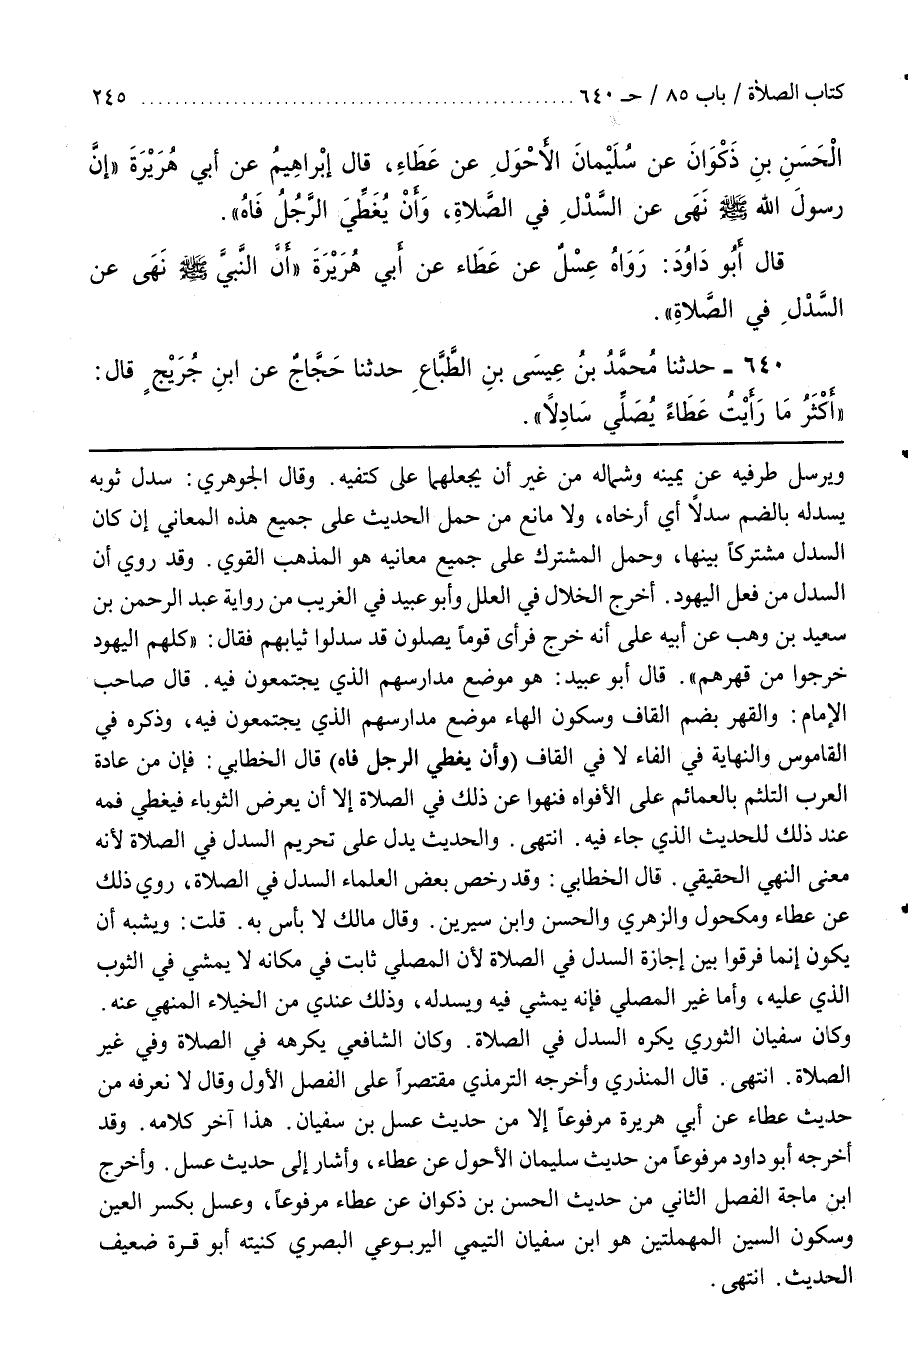 كتاب الصلاة / باب ٨٥ / حـ ٦٤٠ ................................................ ٢٤٥
الْحَسَنِ بنِ ذَكْوَانَ عن سُلَيْمانَ الأَحْوَلِ عن عَطَاءِ، قال إبْراهِيمُ عن أبي هُرَيْرَةَ «إنَّ
رسولَ الله ﷺ نَهَى عن السَّدْلِ في الصَّلاةِ، وَأَنْ يُغَطِّيَ الرَّجُلُ فَاهُ».
قال أَبُو دَاوُدَ: رَوَاهُ عِسْلٌ عن عَطَاء عن أَبي هُرَيْرَةَ «أَنَّ النَّبيَّ ﷺ نَهَى عن
السَّدْلِ في الصَّلاةِ».
٦٤٠ - حدثنا مُحمَّدُ بنُ عِيسَى بنِ الطَّبَّاعِ حدثنا حَجَّاجٌ عن ابنِ جُرَيْجٍ قال:
«أَكْثَرُ مَا رَأَيْتُ عَطَاءً يُصَلِّي سَادِلاً».
ويرسل طرفيه عن يمينه وشماله من غير أن يجعلهما على كتفيه. وقال الجوهري: سدل ثوبه
يسدله بالضم سدلاً أي أرخاه، ولا مانع من حمل الحديث على جميع هذه المعاني إن كان
السدل مشتركاً بينها، وحمل المشترك على جميع معانيه هو المذهب القوي. وقد روي أن
السدل من فعل اليهود. أخرج الخلال في العلل وأبو عبيد في الغريب من رواية عبد الرحمن بن
سعيد بن وهب عن أبيه على أنه خرج فرأى قوماً يصلون قد سدلوا ثيابهم فقال: «كلهم اليهود
خرجوا من قهرهم». قال أبو عبيد: هو موضع مدارسهم الذي يجتمعون فيه. قال صاحب
الإمام: والقهر بضم القاف وسكون الهاء موضع مدارسهم الذي يجتمعون فيه، وذكره في
القاموس والنهاية في الفاء لا في القاف (وأن يغطي الرجل فاه) قال الخطابي: فإن من عادة
العرب التلثم بالعمائم على الأفواه فنهوا عن ذلك في الصلاة إلا أن يعرض الثوباء فيغطي فمه
عند ذلك للحديث الذي جاء فيه. انتهى. والحديث يدل على تحريم السدل في الصلاة لأنه
معنى النهي الحقيقي. قال الخطابي: وقد رخص بعض العلماء السدل في الصلاة، روي ذلك
عن عطاء ومكحول والزهري والحسن وابن سيرين. وقال مالك لا بأس به. قلت: ويشبه أن
يكون إنما فرقوا بين إجازة السدل في الصلاة لأن المصلي ثابت في مكانه لا يمشي في الثوب
الذي عليه، وأما غير المصلي فإنه يمشي فيه ويسدله، وذلك عندي من الخيلاء المنهي عنه.
وكان سفيان الثوري يكره السدل في الصلاة. وكان الشافعي يكرهه في الصلاة وفي غير
الصلاة. انتهى. قال المنذري وأخرجه الترمذي مقتصراً على الفصل الأول وقال لا نعرفه من
حديث عطاء عن أبي هريرة مرفوعاً إلا من حديث عسل بن سفيان. هذا آخر كلامه. وقد
أخرجه أبو داود مرفوعاً من حديث سليمان الأحول عن عطاء، وأشار إلى حديث عسل. وأخرج
ابن ماجة الفصل الثاني من حديث الحسن بن ذكوان عن عطاء مرفوعاً، وعسل بكسر العين
وسكون السين المهملتين هو ابن سفيان التيمي اليربوعي البصري كنيته أبو قرة ضعيف
الحديث. انتهى.